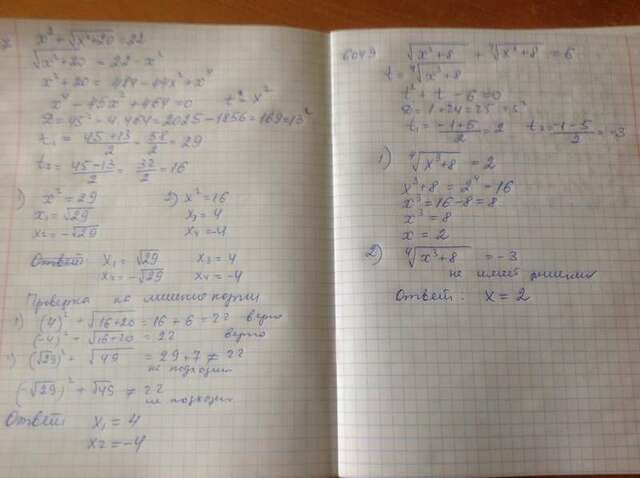 x² + √x²+20 = 22
√x²+20 = 22 - x²
x² + 20 = 484 - 44x² + x⁴
x⁴ - 45x² + 464 = 0 t = x²
D = 45² - 4·464 = 2025 - 1856 = 169 = 13²
t₁ = (45+13)/2 = 58/2 = 29
t₂ = (45-13)/2 = 32/2 = 16
1) x² = 29 2) x² = 16
x₁ = √29 x₃ = 4
x₂ = -√29 x₄ = -4
Ответ: x₁ = √29 x₃ = 4
x₂ = -√29 x₄ = -4
Проверка на лишние корни
(4)² + √16+20 = 16 + 6 = 22 верно
(-4)² + √16+20 = 22 верно
(√29)² + √49 = 29 + 7 ≠ 22
не подходит
(-√29)² + √49 ≠ 22
не подходит
Ответ: x₁ = 4
x₂ = -4
6049 √x³+8 + ⁴√x³+8 = 6
t = ⁴√x³+8
t² + t - 6 = 0
D = 1 + 24 = 25 = 5²
t₁ = (-1+5)/2 = 2 t₂ = (-1-5)/2 = -3
1) ⁴√x³+8 = 2
x³ + 8 = 2⁴ = 16
x³ = 16 - 8 = 8
x³ = 8
x = 2
2) ⁴√x³+8 = -3
не имеет решения
Ответ: x = 2